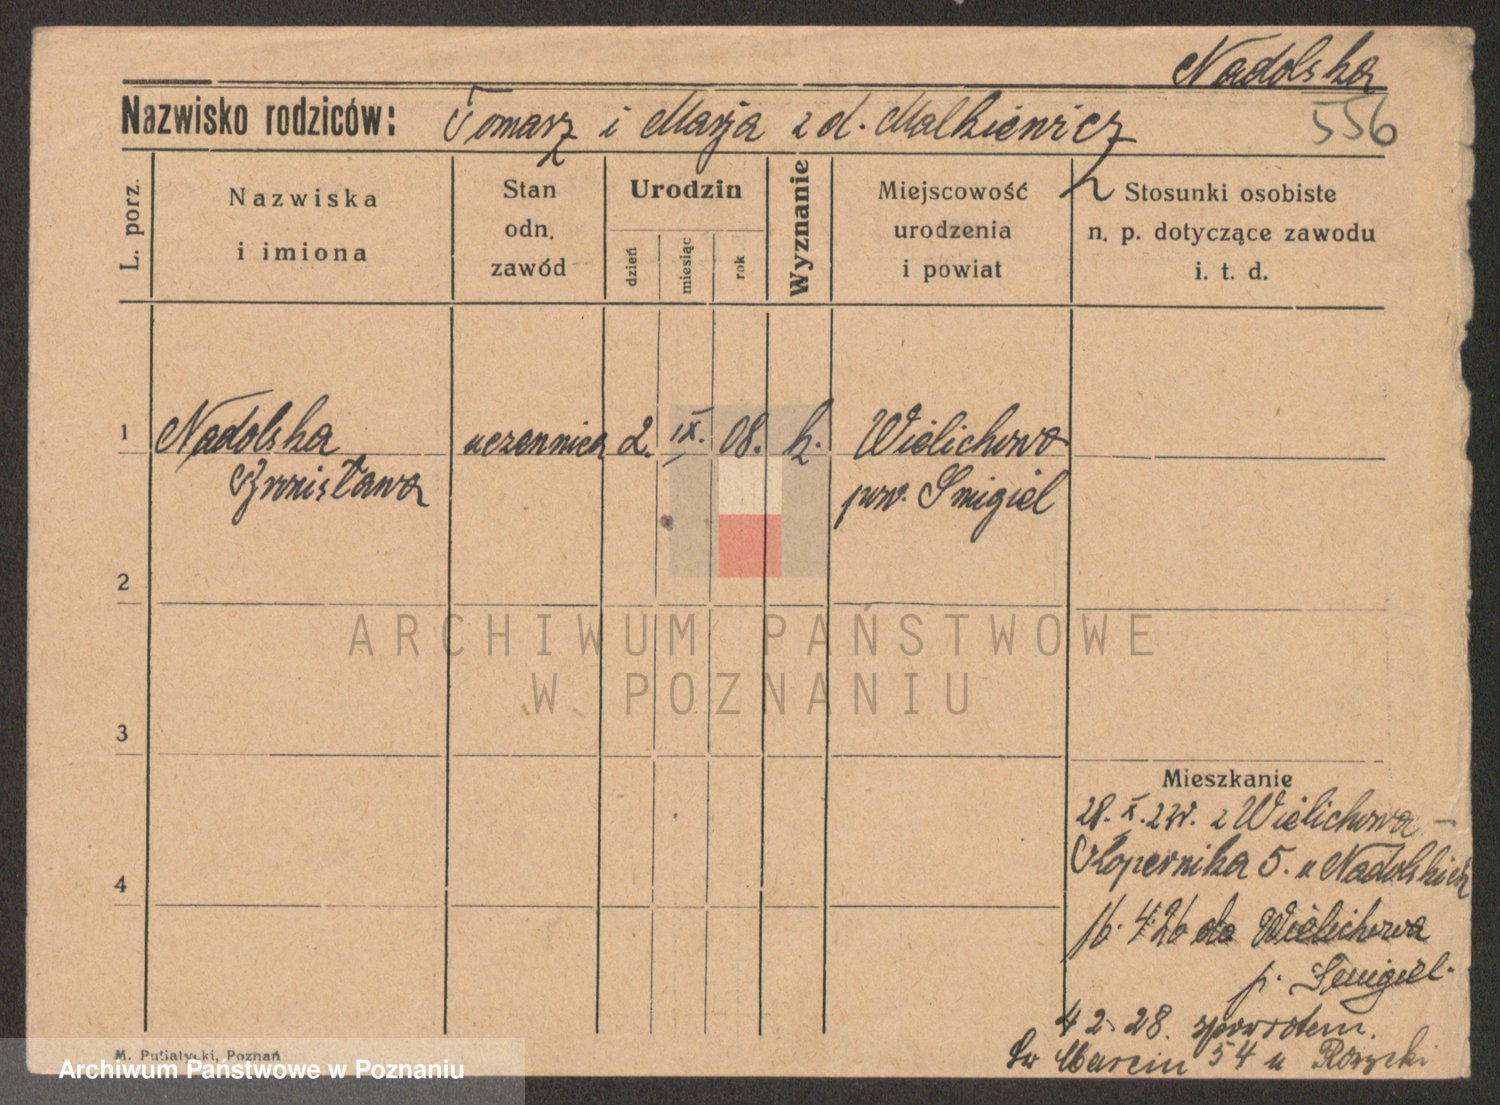 Nadolska
Nazwisko rodziców: Tomasz i Marja z d. Malkiewicz
556
L. porz.
Nazwiska
i imiona
Stan
odn.
zawód
Urodzin
dzień
miesiąc
rok
Wyznanie
Miejscowość
urodzenia
i powiat
Stosunki osobiste
n. p. dotyczące zawodu
i. t. d.
1 Nadolska uczennica 2. IX. 08. k. Wielichowo
Bronisława pow. Smigiel
2
ARCHIWUM PAŃSTWOWE
W POZNANIU
3
Mieszkanie
28. X. 23r. z Wielichowa –
Kopernika 5. u Nadolskich
4
16. 4. 26 do Wielichowa
p. Smigiel.
4 2. 28. spowrotem.
Św Marcin 54 u Rózycki
M. Putiatycki, Poznań
Archiwum Państwowe w Poznaniu